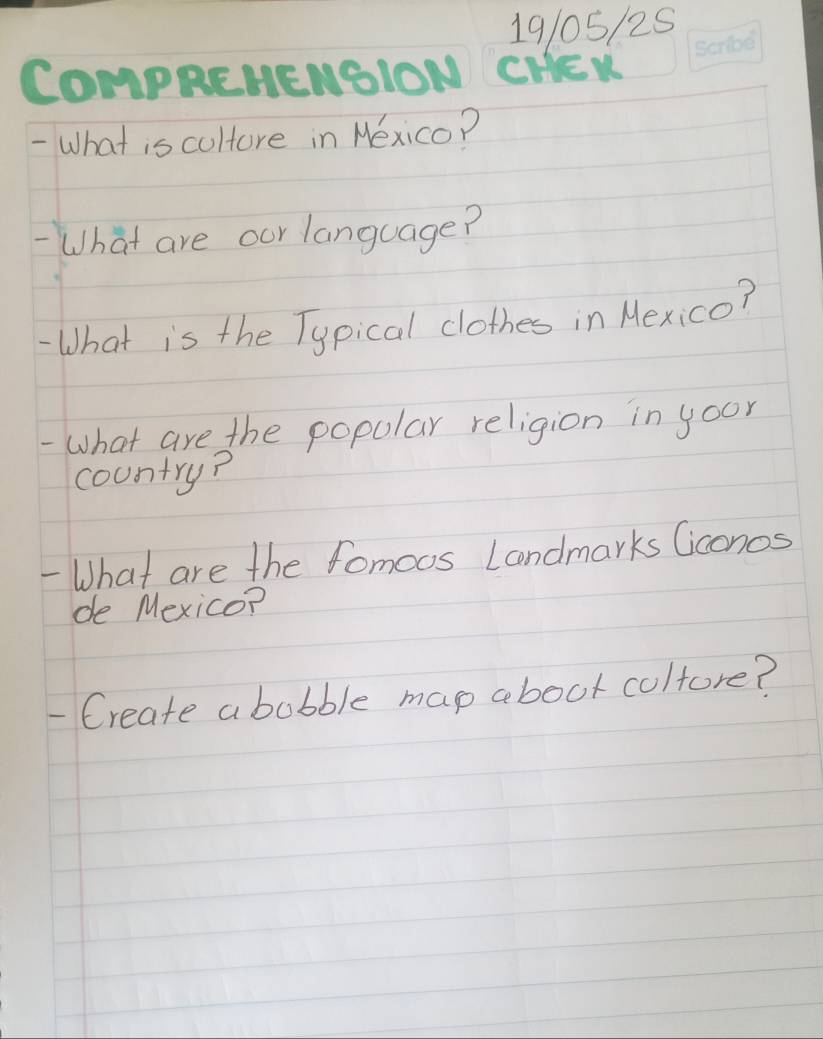 19/05/25
Scribe
COMPREHENSION CHEK
- What is culture in México?
- What are our language?
- What is the Typical clothes in Mexico?
- What are the popular religion in your
country?
- What are the fomous Landmarks (iconos
de Mexico?
- Create a bubble map about culture?